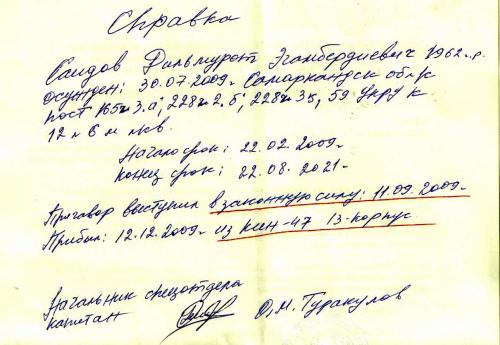 Справка
Саидов Дильмурот Эгамбердиевич 1962 г.р.
осужден: 30.07.2009г Самаркандск обл/с
по ст 165ч 3.а, 228ч 2.б, 228ч 3, 59 УКРУ к
12 л 6 м л/св.
Начало срок: 22.02.2009г
Конец срок: 22.08.2021г
Приговор выступил в законную силу: 11.09.2009г
Прибыл: 12.12.2009г из КИН-47 13-корпус
Начальник спецотдела
капитан О.М. Туракулов